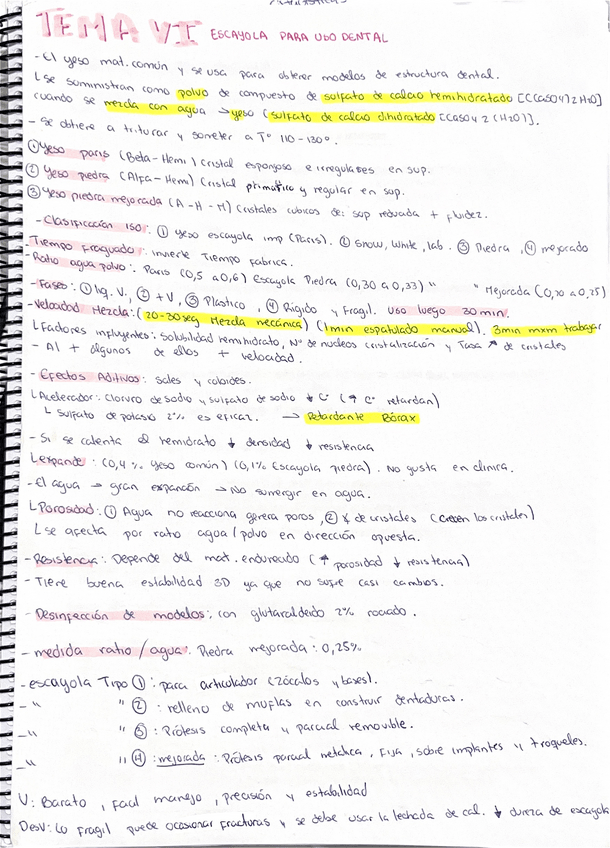 TEMA VI ESCAYOLA PARA USO DENTAL
- El yeso mat. común y se usa para obtener modelos de estructura dental.
↳ se suministran como polvo de compuesto de sulfato de calcio hemihidratado [C(CaSO4)2H2O]
cuando se mezcla con agua → yeso (sulfato de calcio dihidratado [CaSO4 2(H2O)].
- Se obtiene a triturar y someter a Tº 110-130º.
① Yeso paris (Beta-Hemi) cristal esponjoso e irregulares en sup.
② Yeso piedra (Alfa-Hemi) Cristal prismático y regular en sup.
③ Yeso piedra mejorada (A-H-M) Cristales cubicos de: sup reducida + fluidez.
- Clasificación ISO: ① yeso escayola imp (Paris). ② Snow, White, lab. ③ Piedra, ④ mejorado
- Tiempo Fraguado: invierte Tiempo fabrica.
- Ratio agua polvo: Paris (0,5 a 0,6) Escayola Piedra (0,30 a 0,33) " " Mejorada (0,20 a 0,25)
- Fases: ① liq. V, ② +V, ③ Plastico, ④ Rigido y Fragil. Uso luego 30 min.
- Velocidad Mezcla: (20-30seg Mezcla mecánica) (1min espatulado manual). 3min mxm trabajar
↳ Factores influyentes: Solubilidad hemihidrato, Nº de nucleos cristalización y Tasa ↗ de cristales
- Al + algunos de ellos + velocidad.
- Efectos Aditivos: sales y coloides.
↳ Acelerador: Cloruro de sodio y sulfato de sodio ↓ Cº (↑ Cº retardan)
↳ Sulfato de potasio 2% es eficaz. → Retardante Bórax
- Si se calienta el hemidrato ↓ densidad ↓ resistencia
↳ expande: (0,4% yeso común) (0,1% Escayola piedra). No gusta en clinica.
- El agua → gran expansión → No sumergir en agua.
↳ Porosidad: ① Agua no reacciona genera poros, ② de cristales (crecen los cristales)
↳ se afecta por ratio agua/polvo en dirección opuesta.
- Resistencia: Depende del mat. endurecido (↑ porosidad ↓ resistencia)
- Tiene buena estabilidad 3D ya que no sufre casi cambios.
- Desinfección de modelos: con glutaraldeido 2% rociado.
- medida ratio/agua: Piedra mejorada: 0,25%
- escayola Tipo ①: para articulador (zócalos y bases).
- " " ②: relleno de muflas en construir dentaduras.
- " " ③: Prótesis completa y parcial removible.
- " " ④: mejorada: Prótesis parcial metalica, Fija, sobre implantes y troqueles.
V: Barato, facil manejo, precisión y estabilidad
Desv: Lo fragil puede ocasionar fracturas y se debe usar la lechada de cal. ↓ dureza de escayola